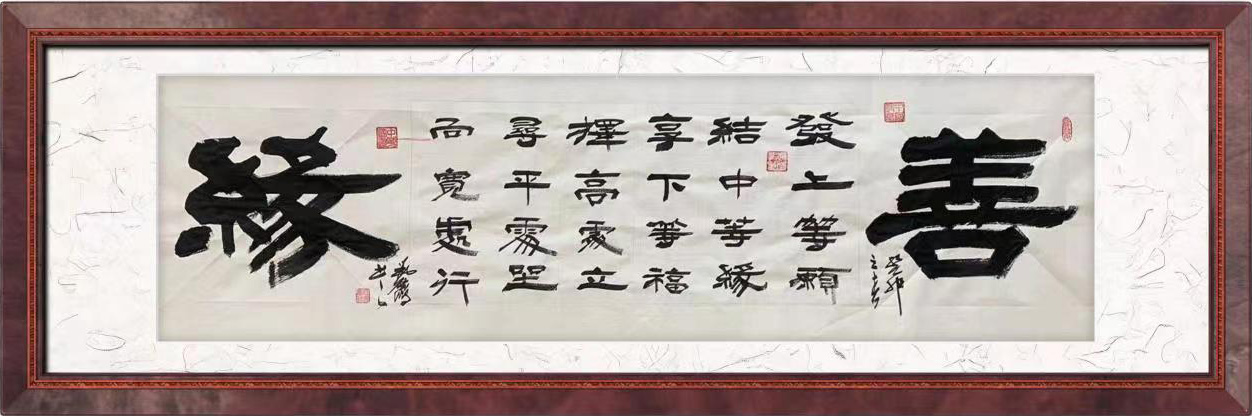 善
癸卯
發上等願
結中等緣
享下等福
擇高處立
尋平處坐
向寬處行
緣